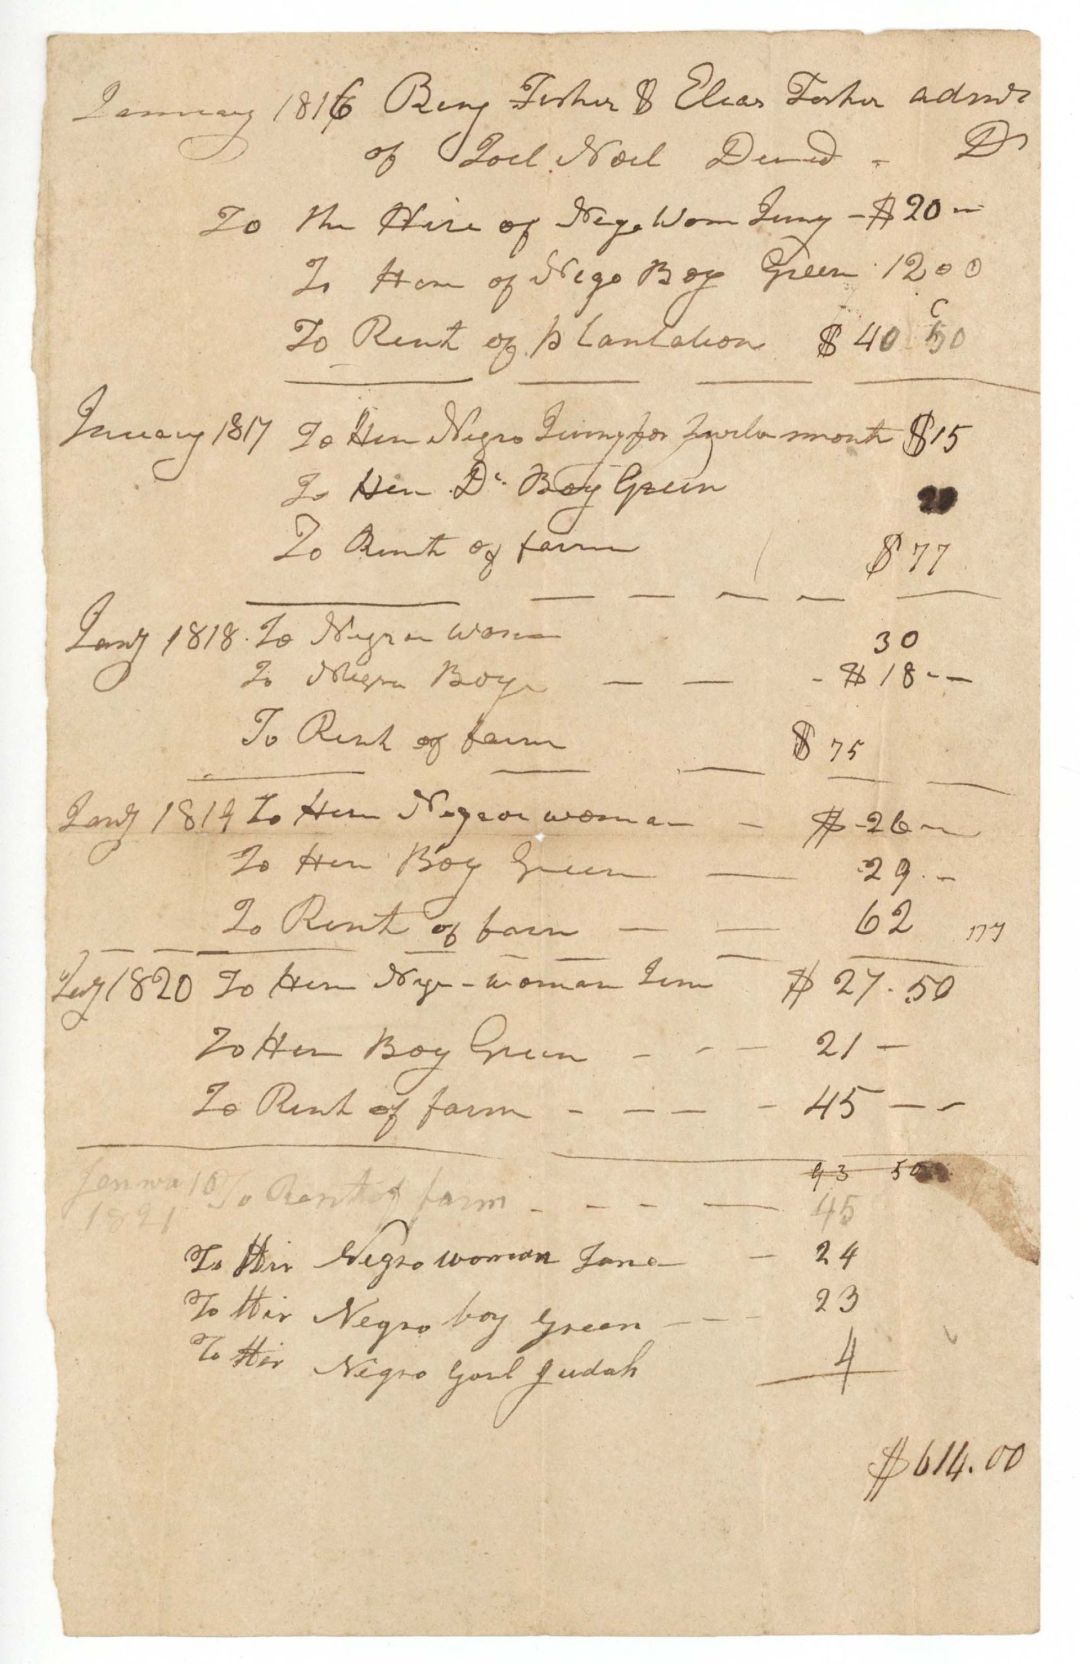 January 1816 Benj Fisher & Elias Fisher admr
of Joel Noel Decd - Dr
To the Hire of Nego Wom Jinny - $20 -
To Hire of Nego Boy Green 12 00
To Rent of plantation $40 50 c
January 1817 To Hire Negro Jinny for Twelve month $15
To Hire Do Boy Green
To Rent of farm $77
Jany 1818. To Negroe Woman 30
To Negro Boy - - - $18 - -
To Rent of farm $75
Jany 1819 To Hire Negroe woman - $26 -
To Hire Boy Green - 29 . -
To Rent of farm - - 62
Jany 1820 To Hire Negr - woman Jene $27.50
To Hire Boy Green - - - 21 -
To Rent of farm - - - - 45 - -
93 50
Jenwa 10 To Rent of farm - - - - 45
1821
To Hir Negro woman Jane - 24
To Hir Negro boy green - - - 23
To Hir Negro Garl Judah 4
$614.00